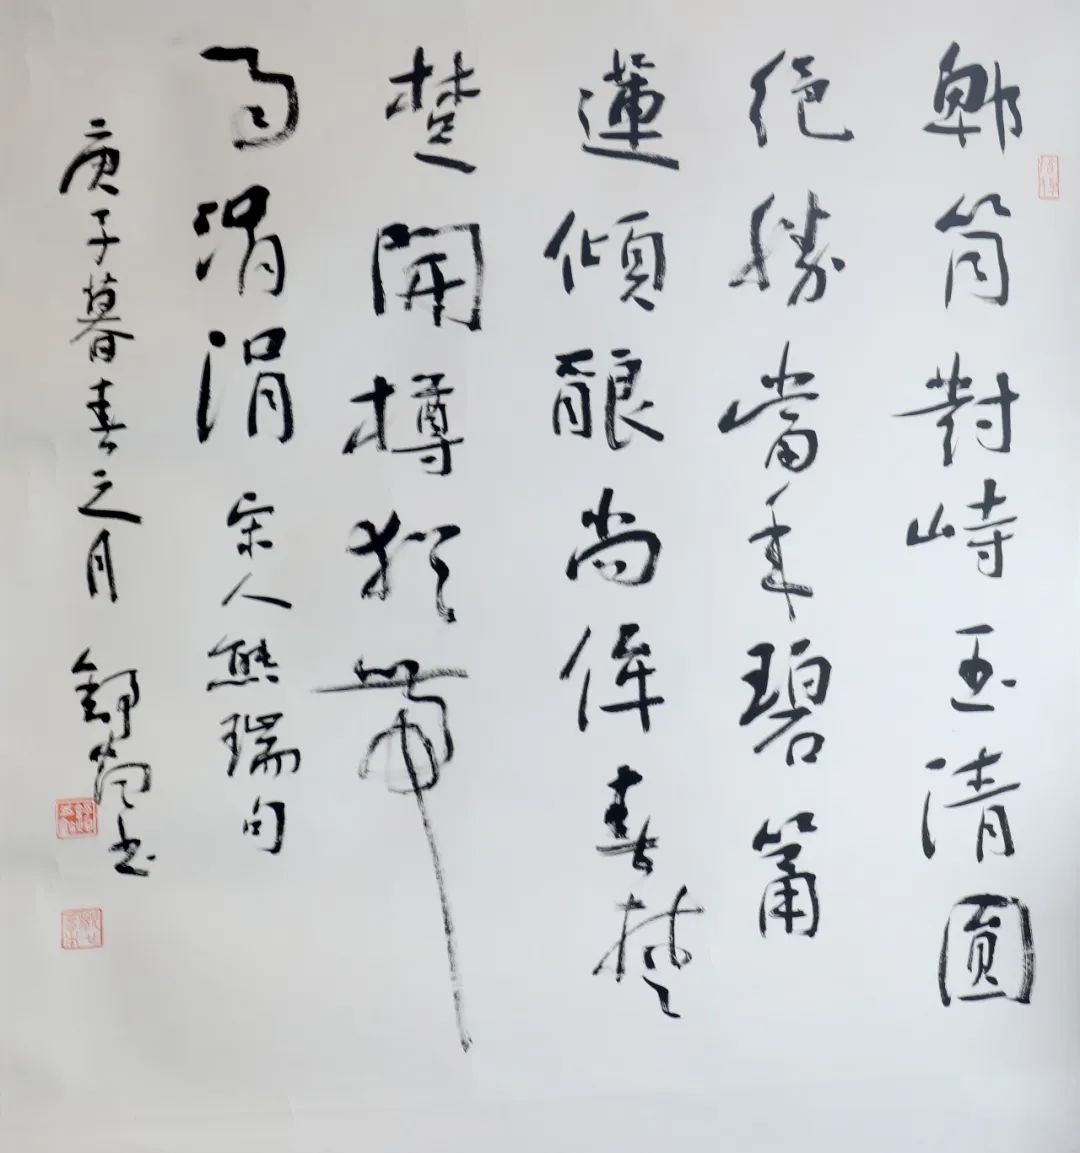 郫筒對峙玉清圓
絕勝當年碧筩
蓮傾酿尚侔春楚
楚開樽猶帶
雨涓涓 宋人熊瑞句
庚子暮春之月 舒 书